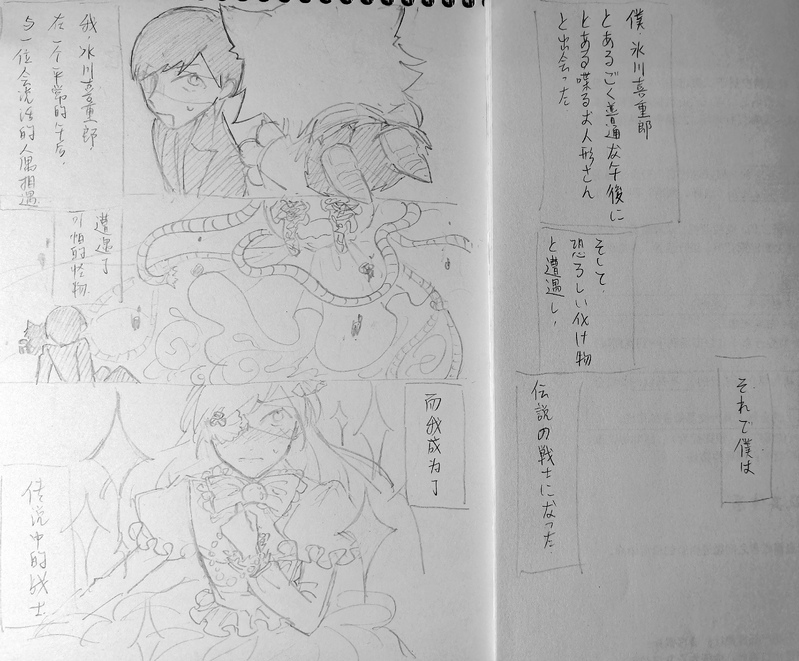 我,氷川喜重郎,
在一个平常的午后,
与一位会说话的人偶相遇
遭遇了
可怕的怪物
而我成为了
传说中的战士
僕、氷川喜重郎
とあるごく普通な午後に
とある喋るお人形さん
と出会った
そして、
恐ろしい化け物
と遭遇し、
それで僕は
伝説の戦士になった